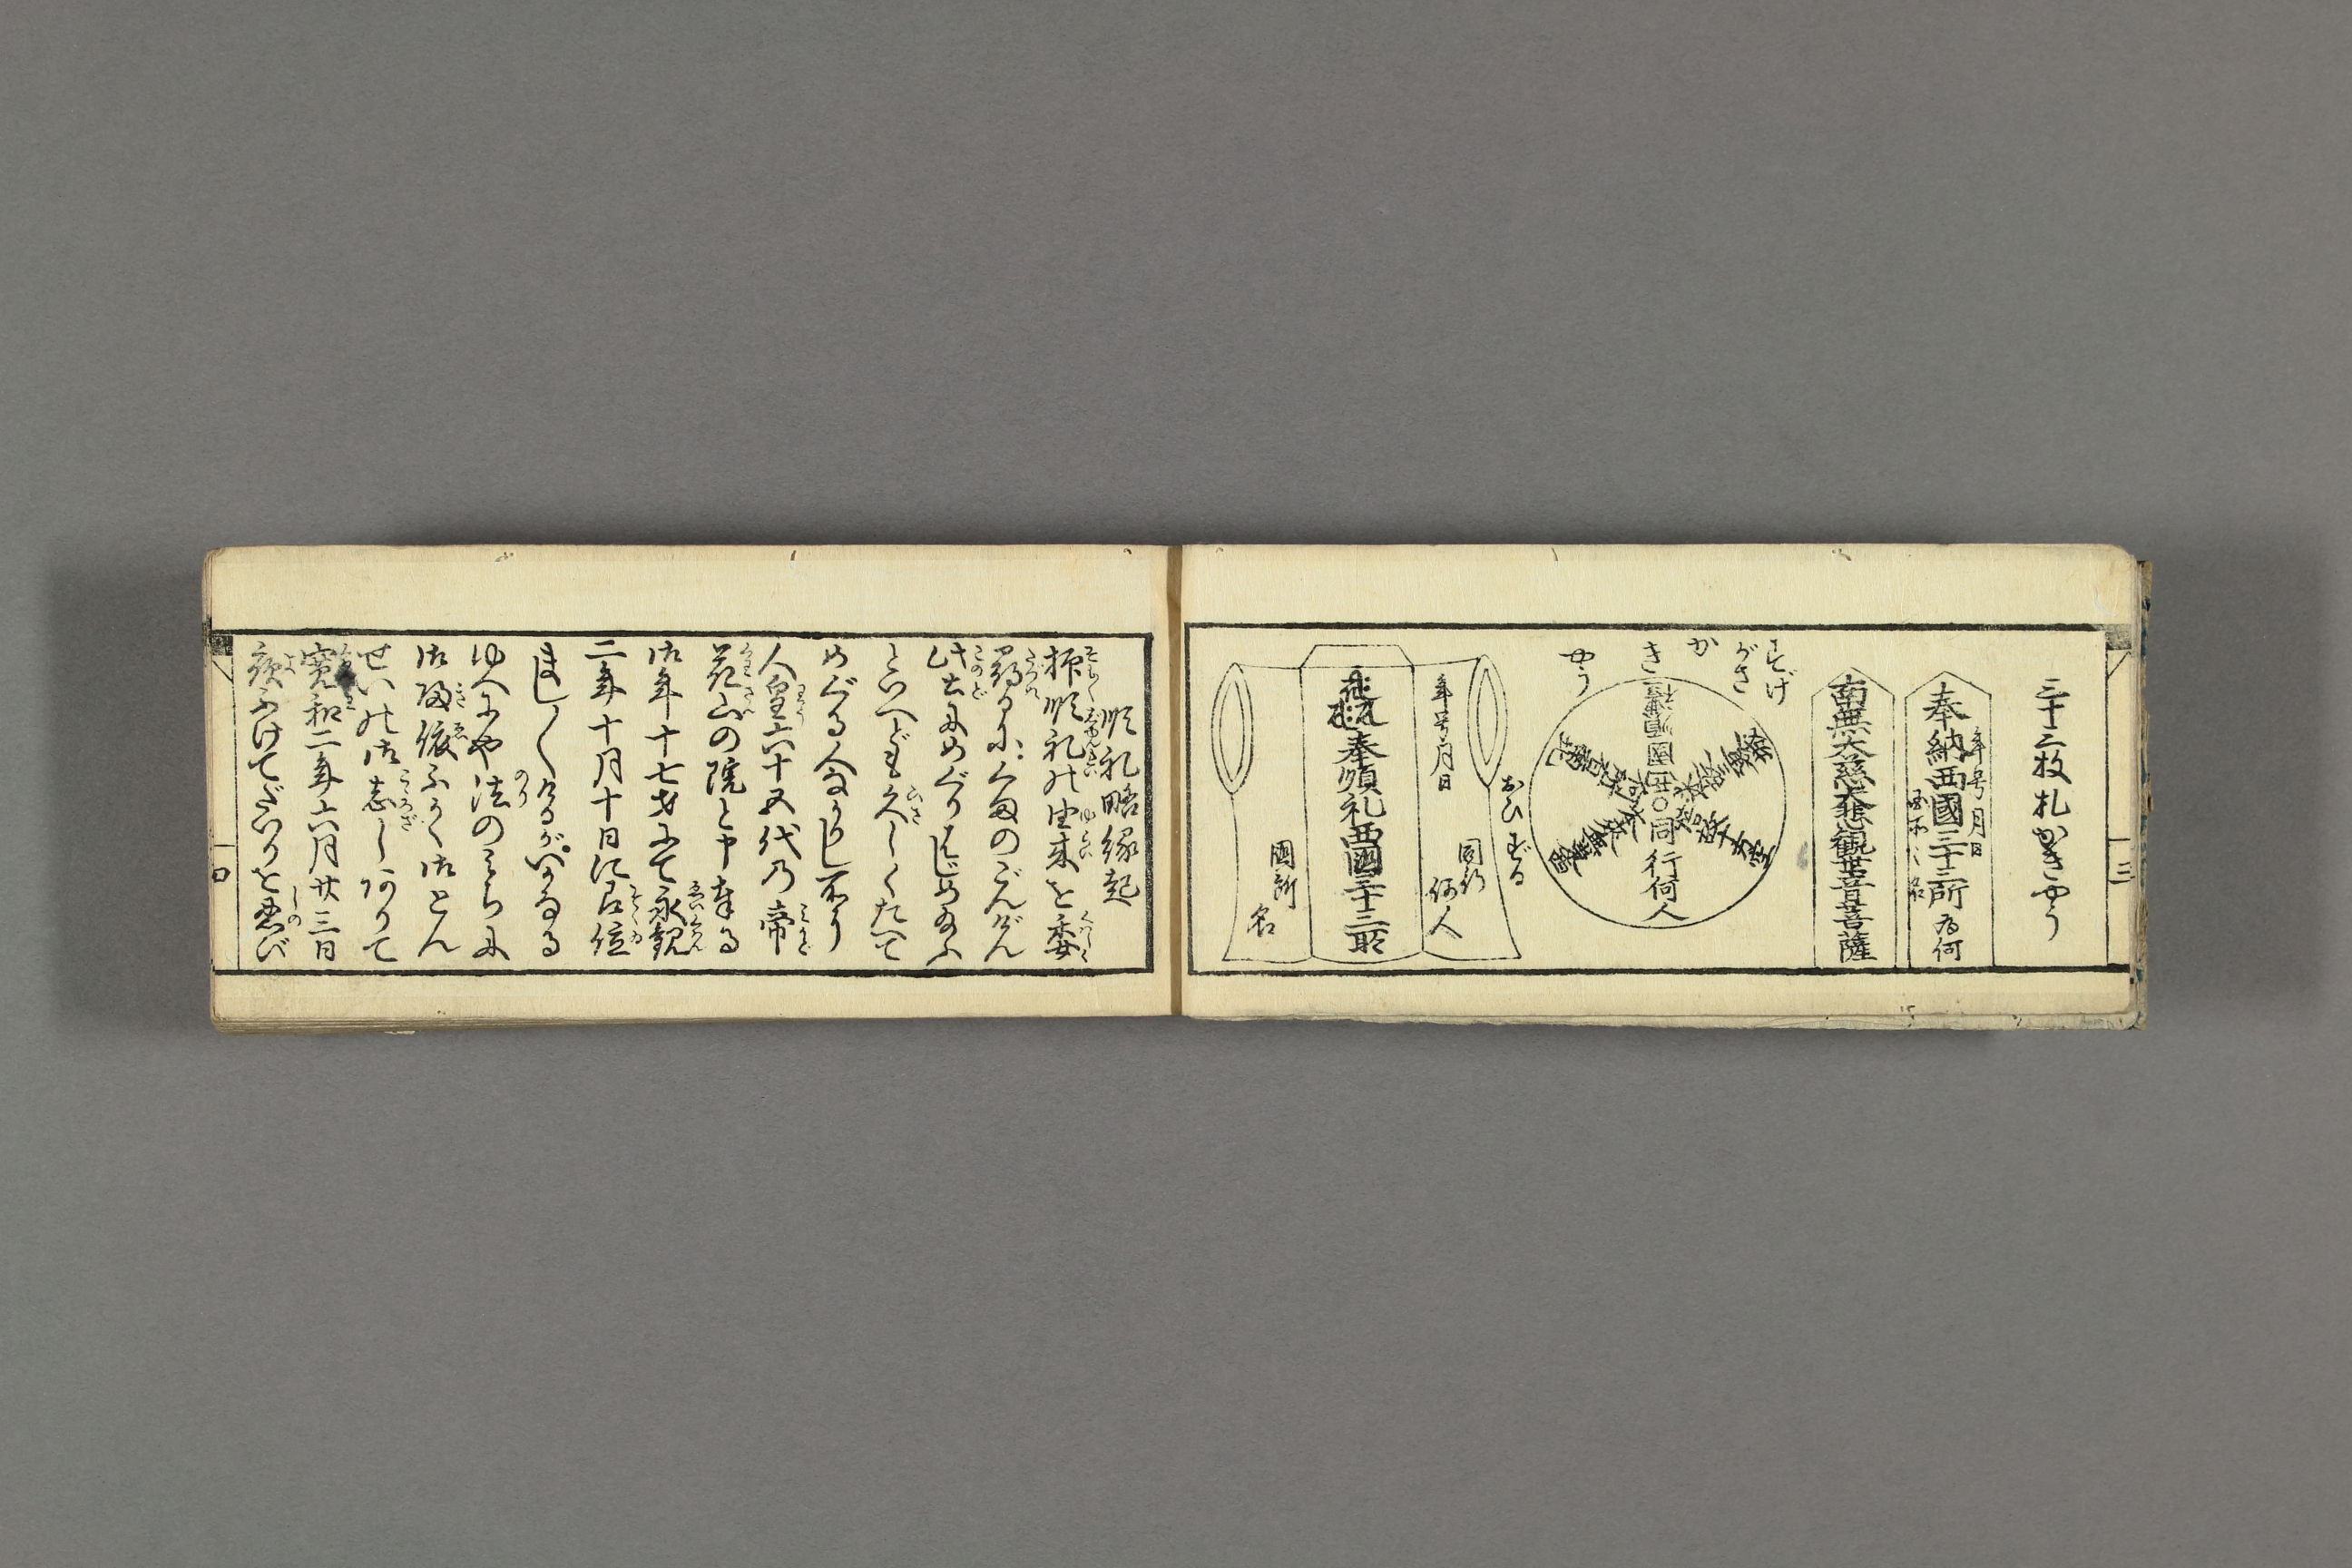 三十三枚札かきやう
奉納西國三十三所為何
年号月日
南無大慈大悲観世音菩薩
すげ
がさ
か
き
やう
同行何人
おひずる
年号月日
同行
何人
奉順礼西國三十三所
國所
名
三
順礼略縁起
抑順礼の由来を委
尋るに、くまのごんげん
此土にめぐりはじめ給ふ
といへども久しくたへて
めぐる人なかりし所に
人皇六十五代乃帝
花山の院と申奉る
御年十七才にて永観
二年十月十日に即位
まし〳〵けるがいかなる
ゆへにや法のみちに
御帰依ふかく御とん
せいの御志しありて
寛和二年六月廿三日
夜ふけてだいりを忍び
四